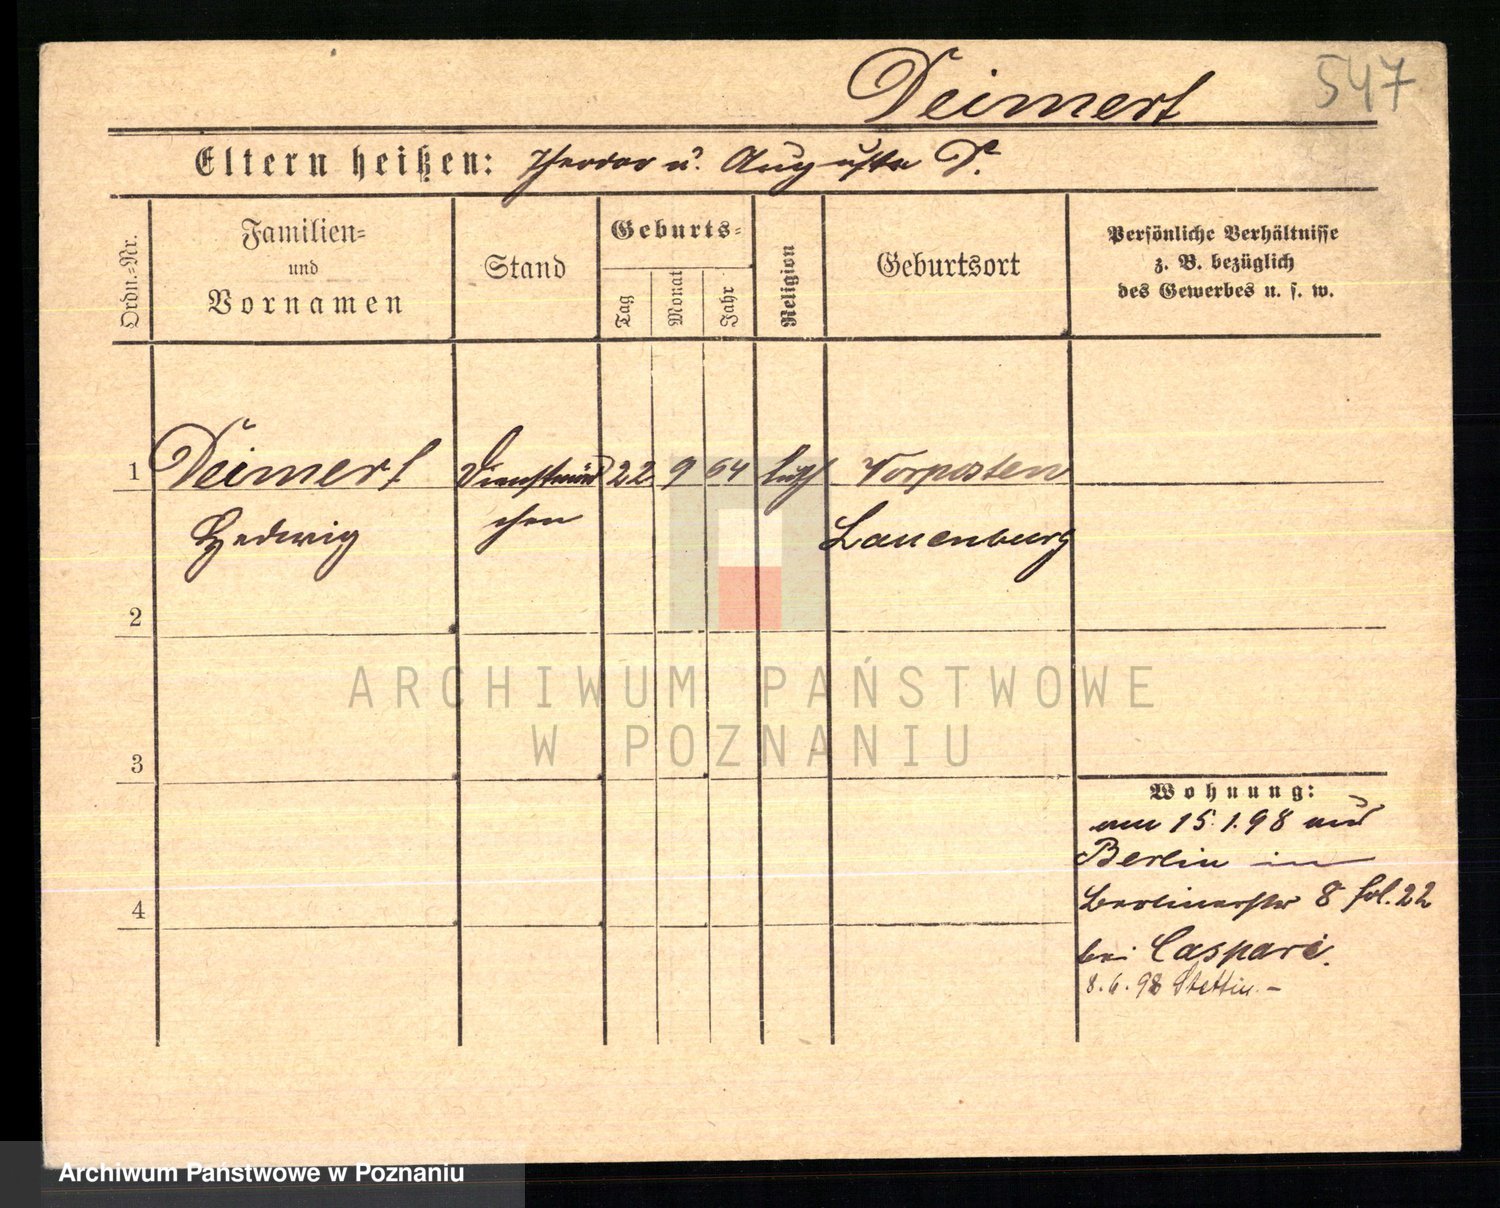 Deimert
547
Eltern heißen: Theodor u. Auguste D.
Ordn.=Nr.
Familien=
und
Vornamen
Stand
Geburts=
Tag
Monat
Jahr
Religion
Geburtsort
Persönliche Verhältnisse
z. B. bezüglich
des Gewerbes u. s. w.
1 Deimert Dienstmäd 22 9 64 luth Vorposten
Hedwig chen Lauenburg
2
3
4
Wohnung:
am 15.1.98 aus
Berlin in
Berlinerstr 8 fol. 22
bei Caspari.
8.6.98 Stettin.-
ARCHIWUM PAŃSTWOWE
W POZNANIU
Archiwum Państwowe w Poznaniu